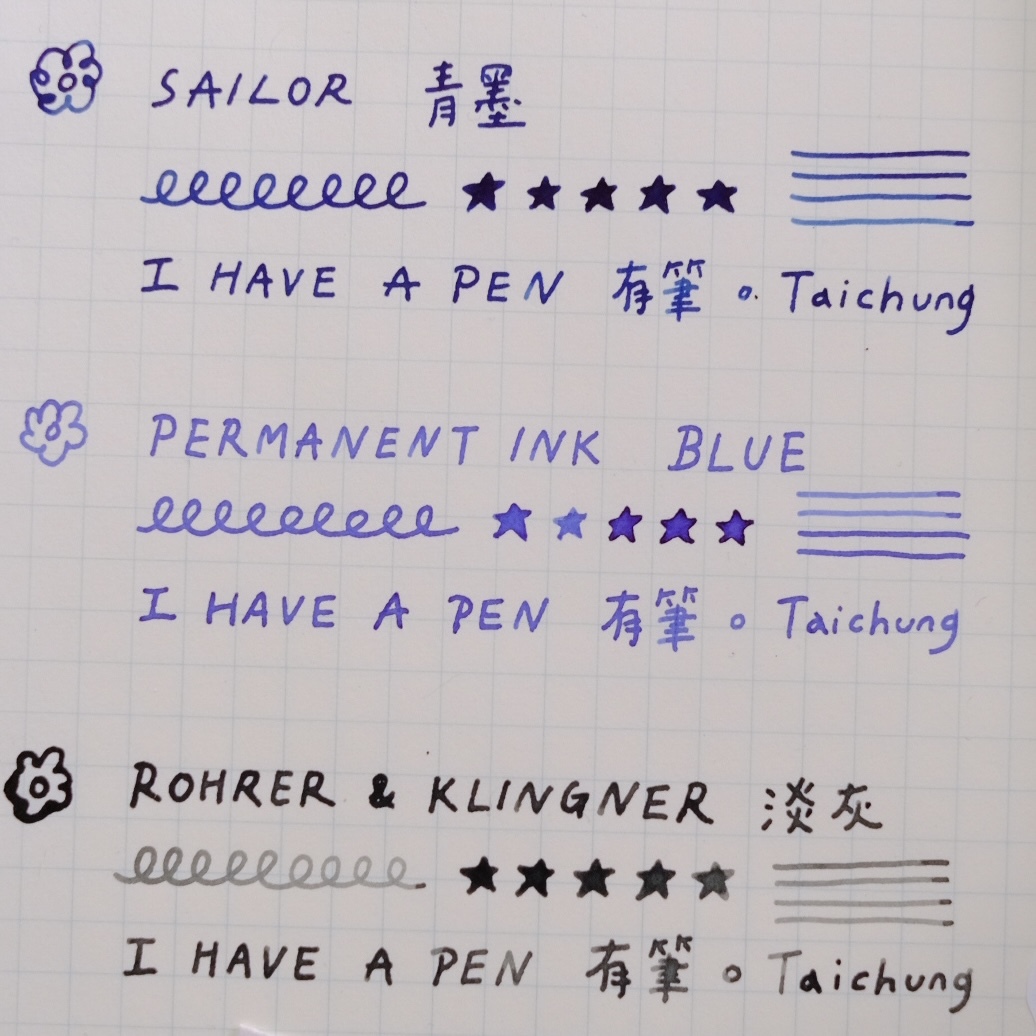 SAILOR 青墨
I HAVE A PEN 有筆。Taichung
PERMANENT INK BLUE
I HAVE A PEN 有筆。Taichung
ROHRER & KLINGNER 淡灰
I HAVE A PEN 有筆。Taichung